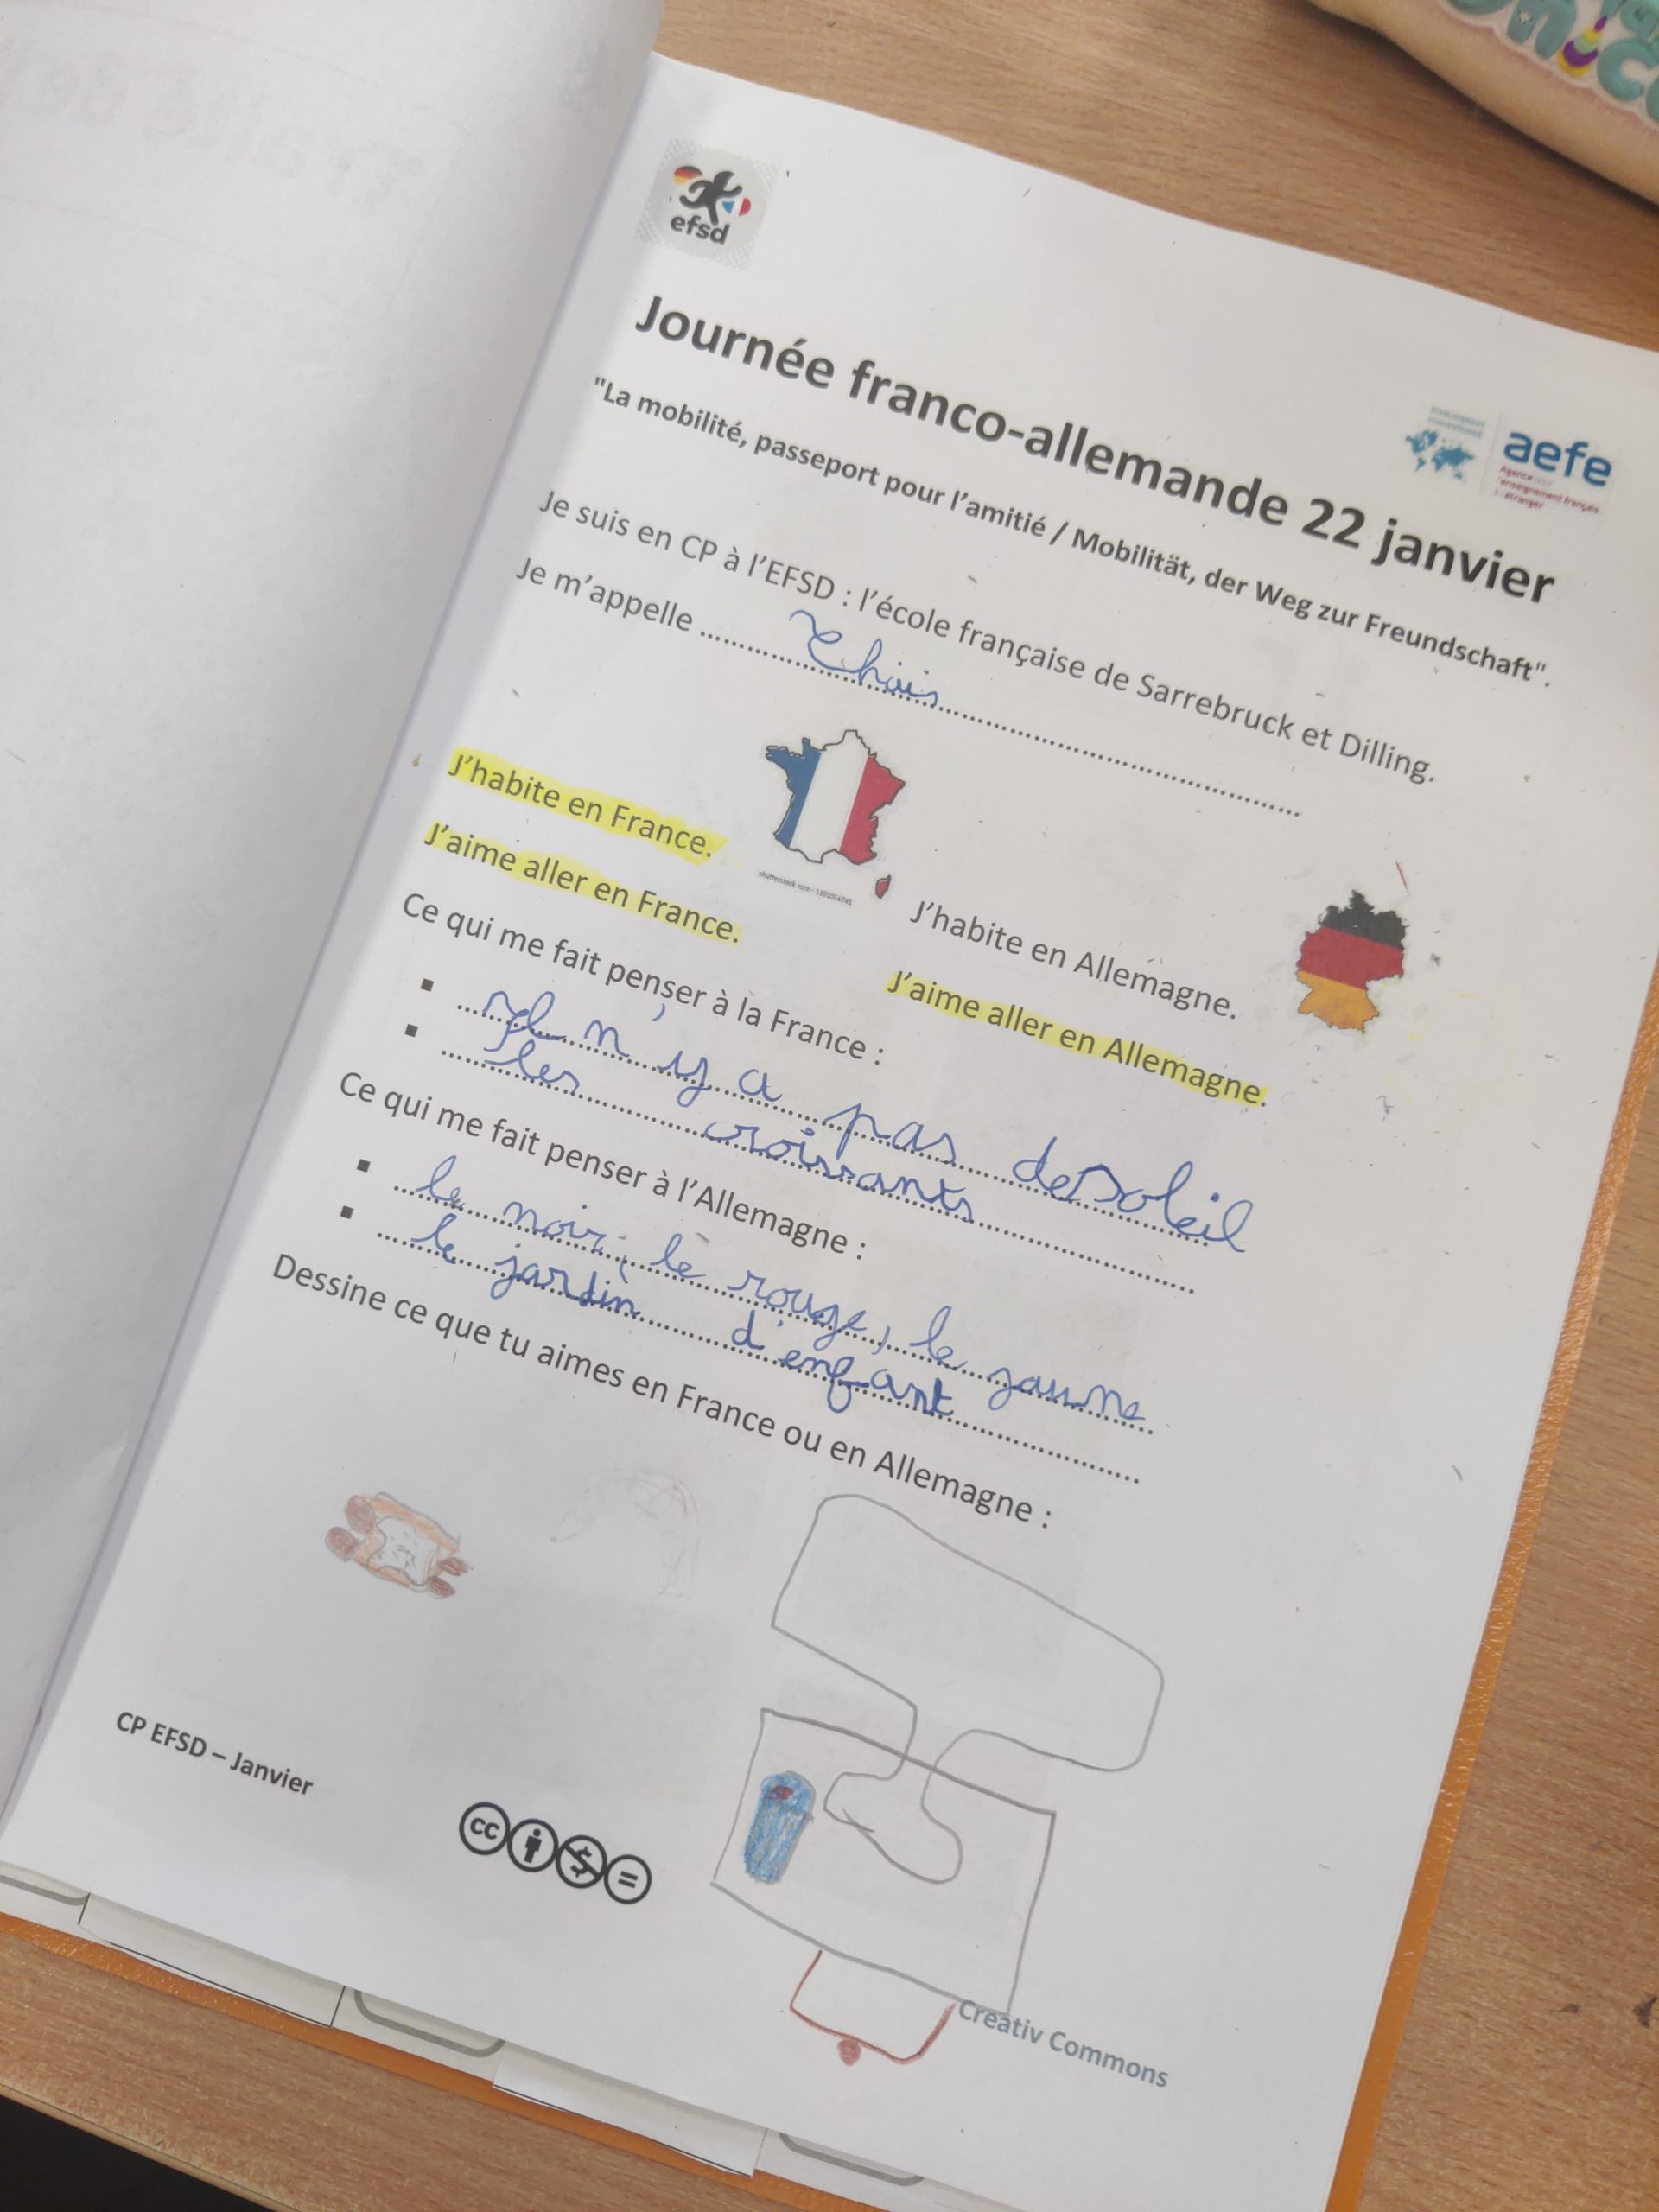 efsd
aefe
Agence pour
l'enseignement français
à l'étranger
Journée franco-allemande 22 janvier
"La mobilité, passeport pour l'amitié / Mobilität, der Weg zur Freundschaft".
Je suis en CP à l'EFSD : l'école française de Sarrebruck et Dilling.
Je m'appelle ........ Thaïs ........
J'habite en France.
J'aime aller en France.
shutterstock.com
J'habite en Allemagne.
J'aime aller en Allemagne.
Ce qui me fait penser à la France :
▪ Il n'y a pas de soleil
▪ les croissants
Ce qui me fait penser à l'Allemagne :
▪ le noir, le rouge, le jaune
▪ le jardin d'enfant
Dessine ce que tu aimes en France ou en Allemagne :
CP EFSD – Janvier
cc
Creativ Commons